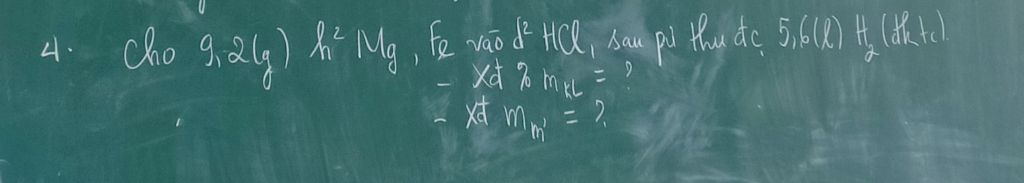 4. Cho 9,2(g) h² Mg, Fe vào d² HCl, sau pứ thu đc 5,6(l) H₂ (đktc).
- Xđ % m KL = ?
- Xđ m m' = ?